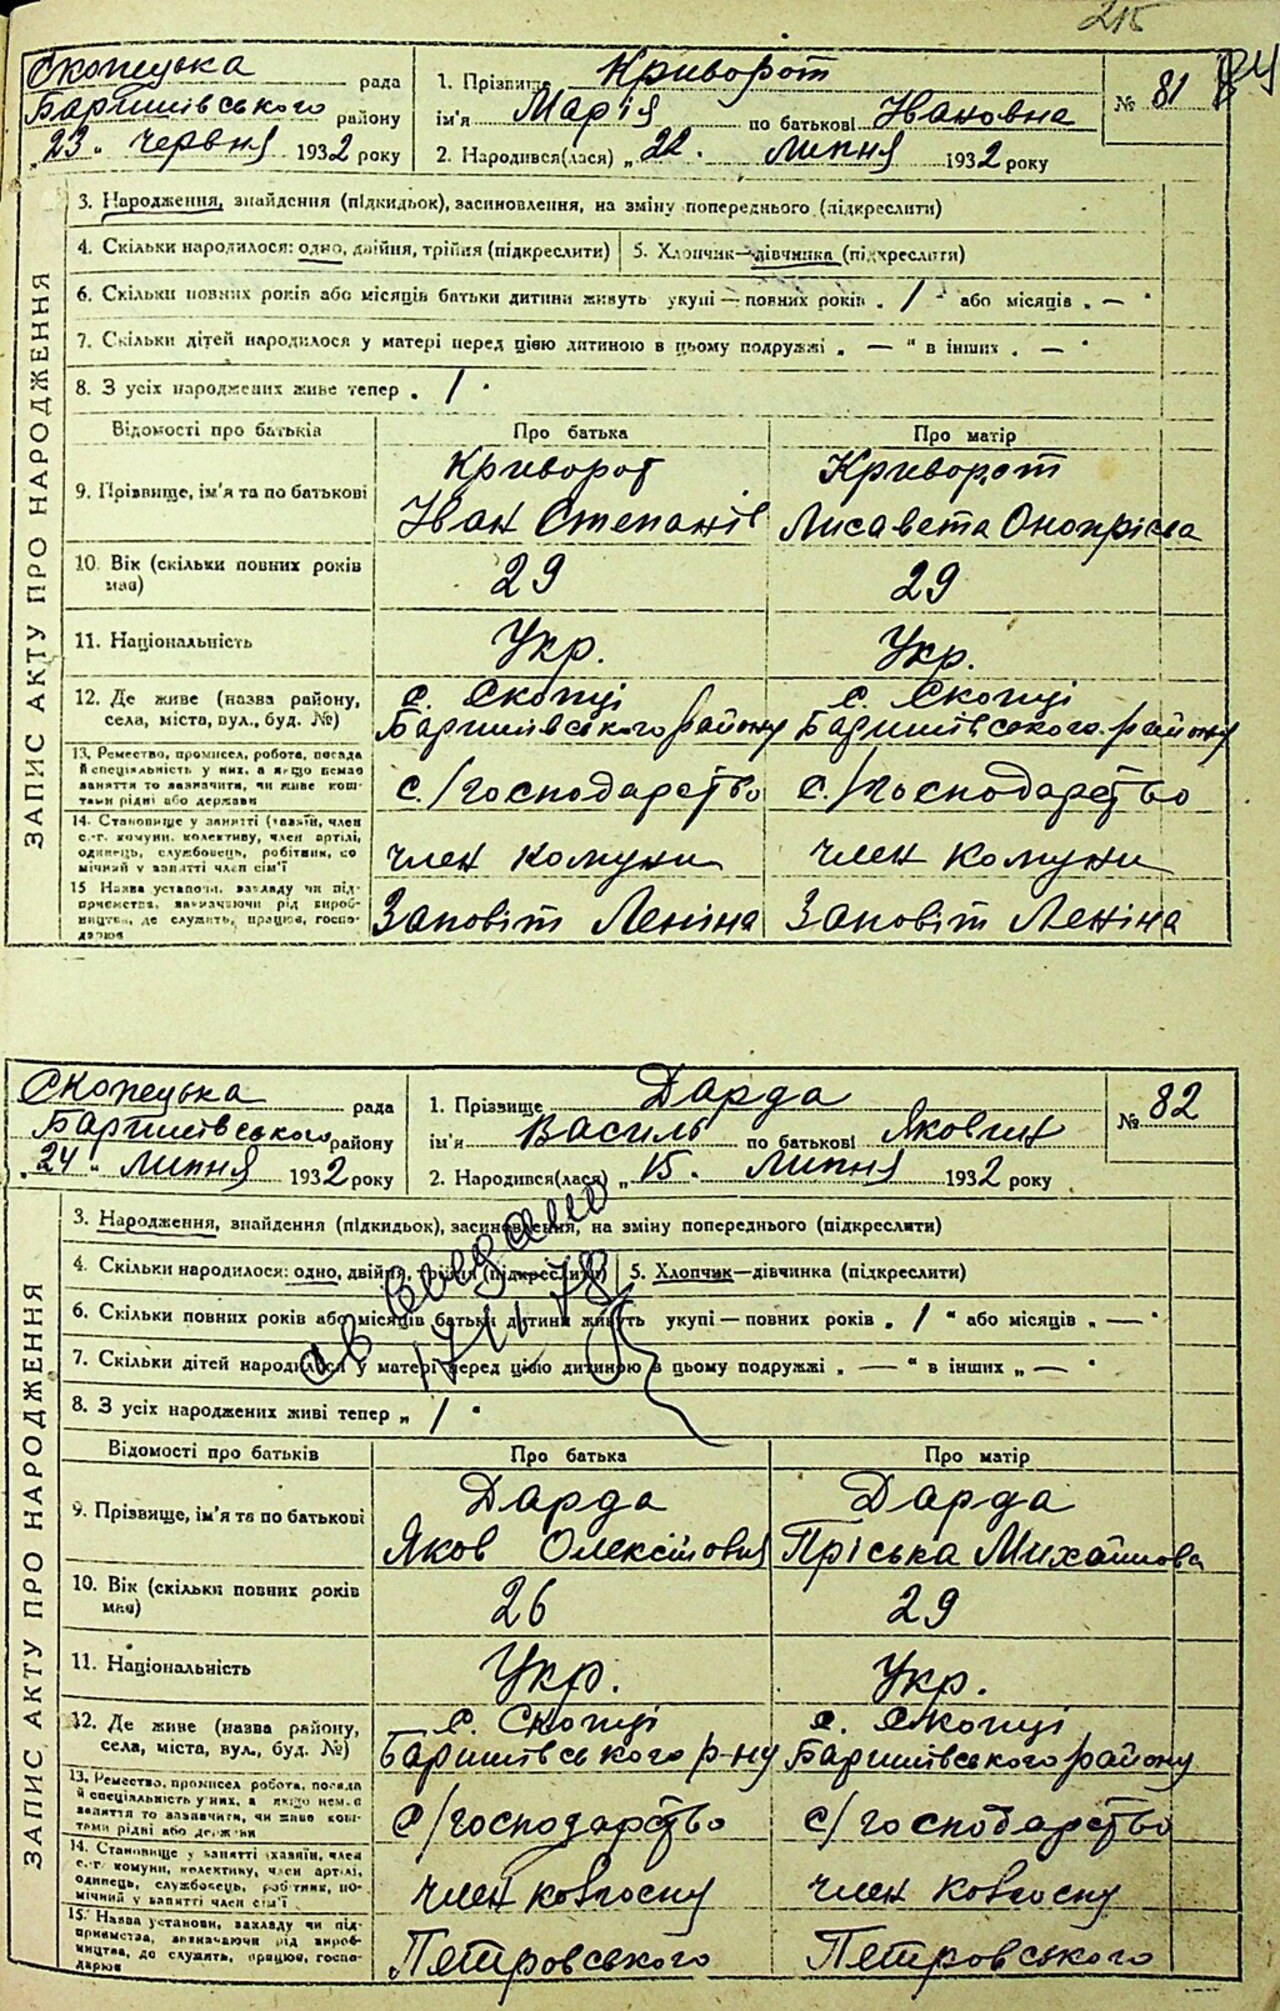 215
84
Скопецька рада
Баришівського району
„23" червня 1932 року
1. Прізвище Криворот
ім'я Марія по батькові Івановна
2. Народився(лася) „22. липня 1932 року
№ 81
ЗАПИС АКТУ ПРО НАРОДЖЕННЯ
3. Народження, знайдення (підкидьок), засиновлення, на зміну попереднього (підкреслити)
4. Скільки народилося: одно, двійня, трійня (підкреслити) 5. Хлопчик—дівчинка (підкреслити)
6. Скільки повних років або місяців батьки дитини живуть укупі — повних років „ 1 " або місяців „ — "
7. Скільки дітей народилося у матері перед цією дитиною в цьому подружжі „ — " в інших „ — "
8. З усіх народжених живе тепер „ 1 "
Відомості про батьків Про батька Про матір
9. Прізвище, ім'я та по батькові
Криворот Іван Степанів
Криворот Лисавета Онопрієва
10. Вік (скільки повних років має) 29 29
11. Національність Укр. Укр.
12. Де живе (назва району, села, міста, вул., буд. №)
с. Скопці Баришівського району
с. Скопці Баришівського району
13. Ремество, промисел, робота, посада й спеціальність у них, а якщо немає заняття то зазначити, чи живе коштами рідні або держави
с./господарство с./господарство
14. Становище у занятті (хазяїн, член с.-г. комуни, колективу, член артілі, одинець, службовець, робітник, помічний у занятті член сім'ї
член комуни член комуни
15 Назва установи, закладу чи підприємства, зазначаючи рід виробництва, де служить, працює, господарює
Заповіт Леніна Заповіт Леніна
Скопецька рада
Баришівського району
„24" липня 1932 року
1. Прізвище Дарда
ім'я Василь по батькові Яковлич
2. Народився(лася) „15. липня 1932 року
№ 82
ЗАПИС АКТУ ПРО НАРОДЖЕННЯ
3. Народження, знайдення (підкидьок), засиновлення, на зміну попереднього (підкреслити)
4. Скільки народилося: одно, двійня, трійня (підкреслити) 5. Хлопчик—дівчинка (підкреслити)
6. Скільки повних років або місяців батьки дитини живуть укупі — повних років „ 1 " або місяців „ — "
7. Скільки дітей народилося у матері перед цією дитиною в цьому подружжі „ — " в інших „ — "
8. З усіх народжених живі тепер „ 1 "
Відомості про батьків Про батька Про матір
9. Прізвище, ім'я та по батькові
Дарда Яков Олексійович
Дарда Пріська Михайлова
10. Вік (скільки повних років має) 26 29
11. Національність Укр. Укр.
12. Де живе (назва району, села, міста, вул., буд. №)
с. Скопці Баришівського р-ну
с. Скопці Баришівського району
13. Ремество, промисел робота, посада й спеціальність у них, а якщо немає заняття то зазначити, чи живе коштами рідні або держави
с/господарство с/господарство
14. Становище у занятті (хазяїн, член с.-г. комуни, колективу, член артілі, одинець, службовець, робітник, помічний у занятті член сім'ї
член ковгоспу член ковгоспу
15. Назва установи, закладу чи підприємства, зазначаючи рід виробництва, де служить, працює, господарює
Петровського Петровського